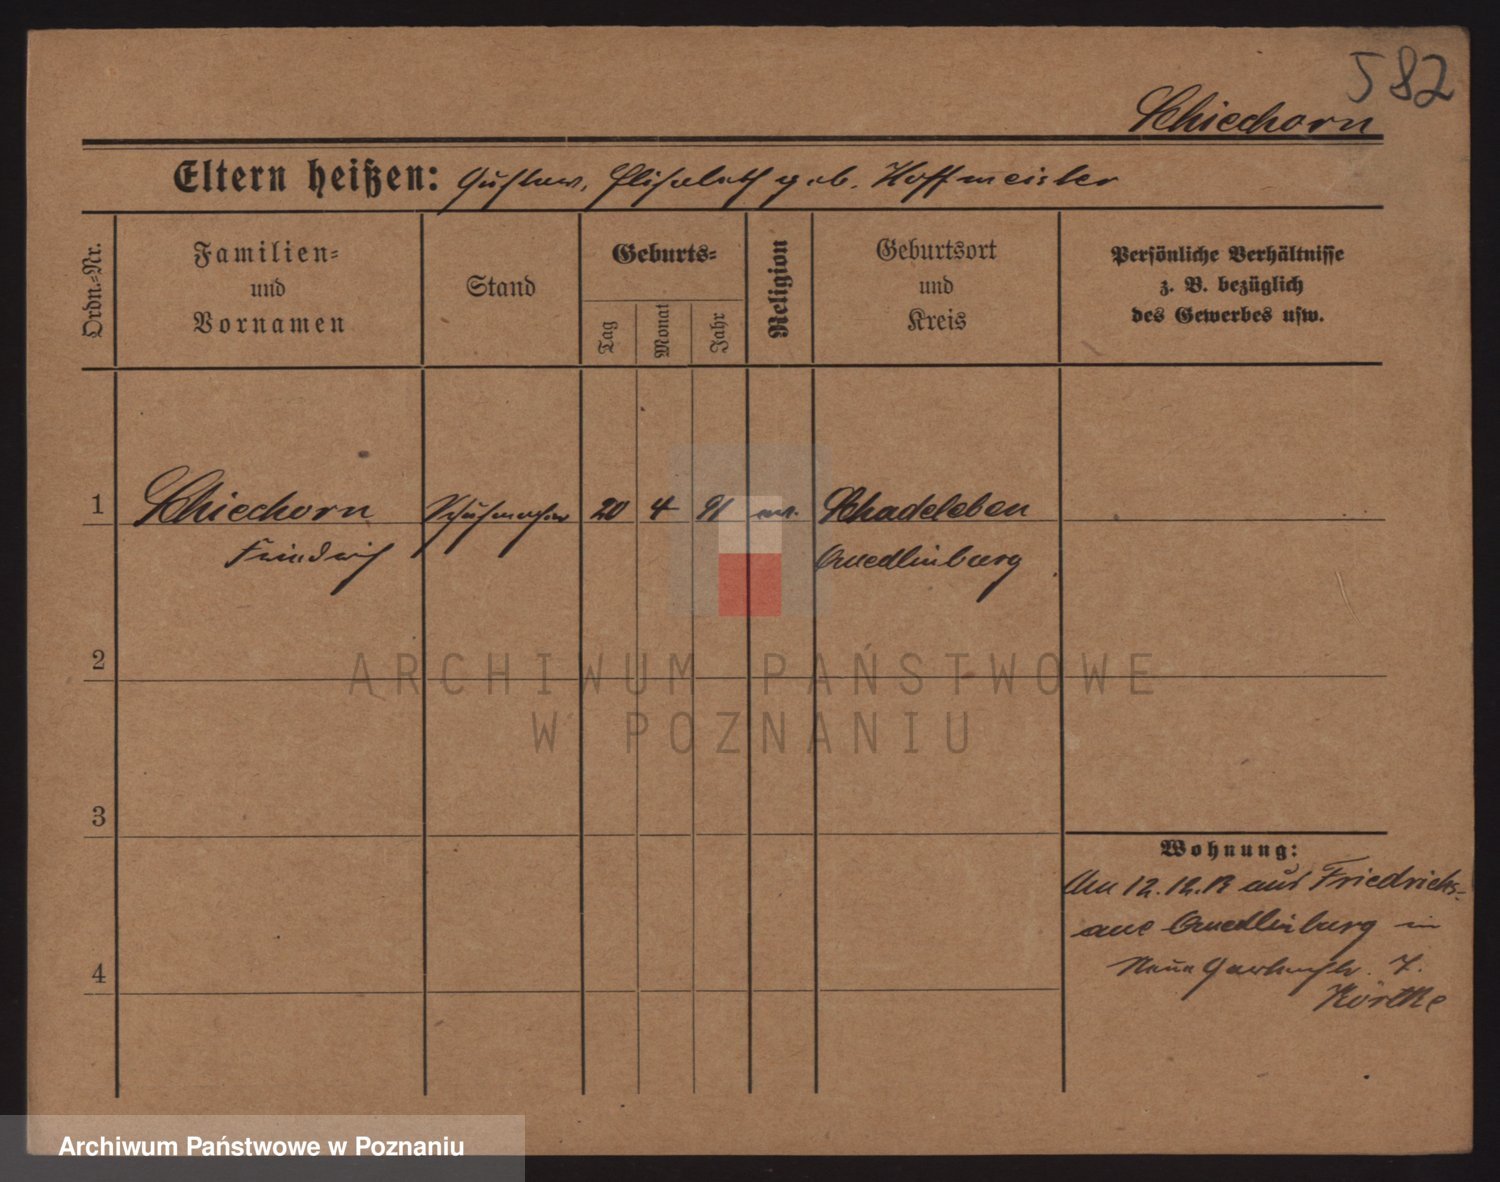 582
Schiechorn
Eltern heißen: Gustav, Elisabeth geb. Hoffmeister
Ordn.-Nr.
Familien-
und
Vornamen
Stand
Geburts-
Tag
Monat
Jahr
Religion
Geburtsort
und
Kreis
Persönliche Verhältnisse
z. B. bezüglich
des Gewerbes usw.
1 Schiechorn Schuhmacher 20 4 91 ev. Schadeleben
Friedrich Quedlinburg
ARCHIWUM PAŃSTWOWE
W POZNANIU
2
3
4
Wohnung:
12.12.13 aus Friedrichs-
aue Quedlinburg in
Neue Gartenstr. 7.
Archiwum Państwowe w Poznaniu